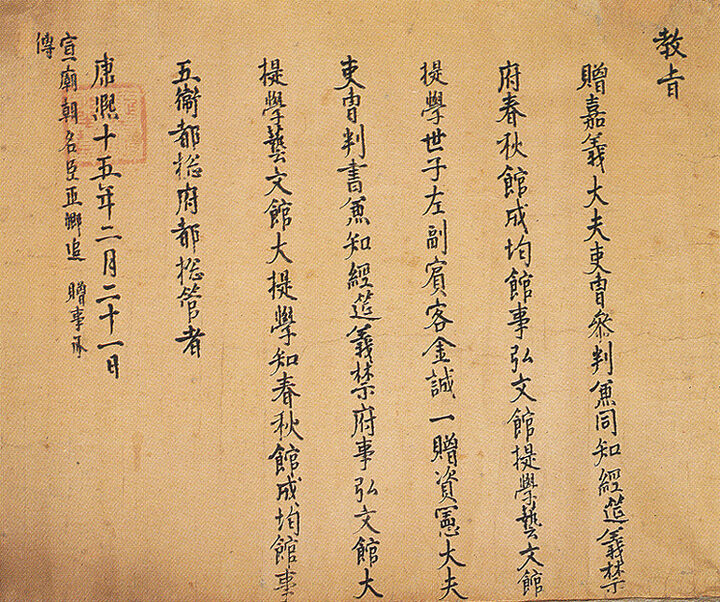 教旨
贈嘉義大夫吏曺叅判兼同知經筵義禁
府春秋館成均館事弘文館提學藝文館
提學世子左副賓客金誠一贈資憲大夫
吏曺判書兼知經筵義禁府事弘文館大
提學藝文館大提學知春秋館成均館事
五衛都摠府都摠管者
康熙十五年二月二十一日
宣廟朝名臣亞卿追 贈事承
傳